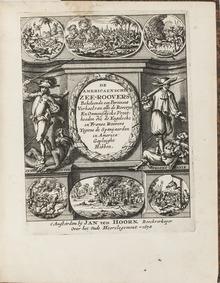 DE
AMERICAENSCHE
ZEE-ROOVERS.
Behelsende een Pertinent
Verhael van alle de Roverye
En Onmenschelycke Wreet
heeden Die de Engelsche
en Franse Roovers
Tegens de Spanjaerden
in America
Gepleeght
Hebben.
t'Amsterdam by JAN TEN HOORN, Boeckverkoper
Over het Oude Heere Logement. 1678